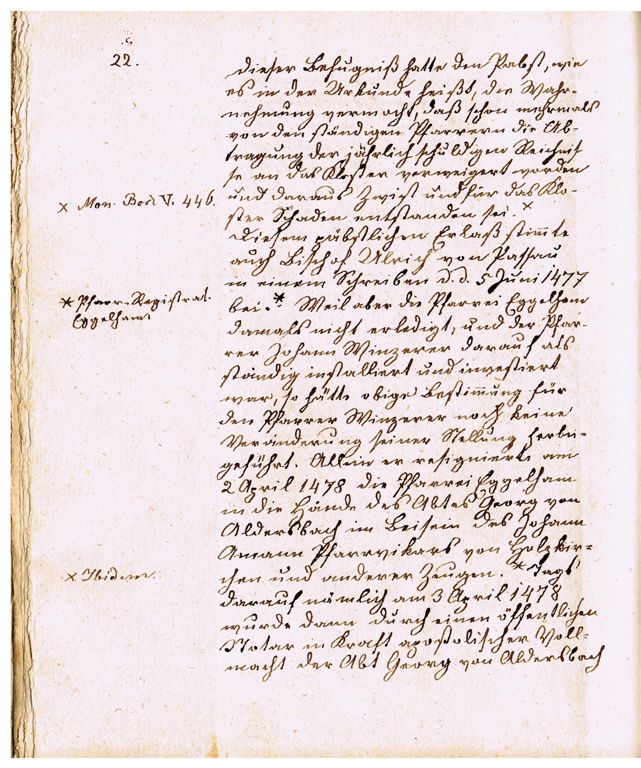 22.
dieser Befugniß hatte den Pabst, wie
es in der Urkunde heißt, die Wahr-
nehmung vermocht, daß schon mehrmals
von den ständigen Pfarrern die Ab-
tragung der jährlich schuldigen Reichnis-
se an das Kloster verweigert worden
und daraus Zwist und für das Klo-
ster Schaden entstanden sei. ×
× Mon. Boic V. 446.
Diesem päbstlichen Erlaß stimmte
auch Bischof Ulrich von Passau
in einem Schreiben d. d. 5 Juni 1477
bei. * Weil aber die Pfarrei Eggelham
* Pfarr-Registrat.
Eggelham
damals nicht erledigt, und der Pfar-
rer Johann Winzerer darauf als
ständig installiert und investiert
war, so hätte obige Bestimmung für
den Pfarrer Winzerer noch keine
Veränderung seiner Stellung herbei-
geführt. Allein er resignierte am
2 April 1478 die Pfarrei Eggelham
in die Hände des Abtes Georg von
Aldersbach im Beisein des Johann
Amann Pfarrvikars von Holzkir-
chen und anderer Zeugen. × Tags
× Ibidem.
darauf nämlich am 3 April 1478
wurde dann durch einen öffentlichen
Notar in Kraft apostolischer Voll-
macht der Abt Georg von Aldersbach